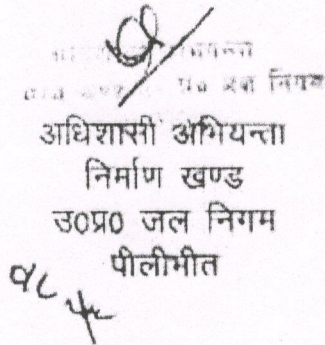 जल निगम
अधिशासी अभियन्ता
निर्माण खण्ड
उ0प्र0 जल निगम
पीलीभीत